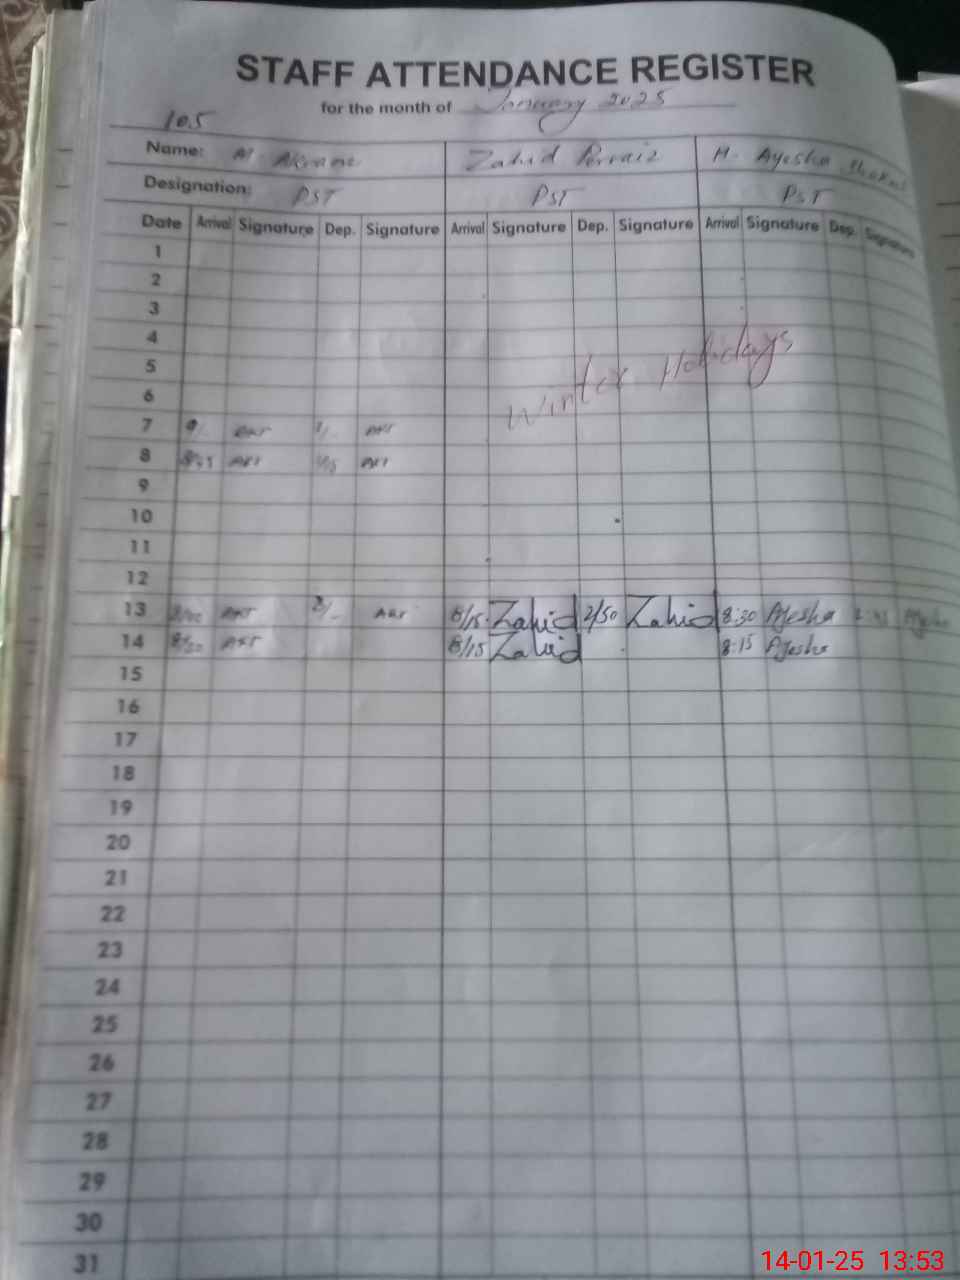 STAFF ATTENDANCE REGISTER
for the month of January 2025
105
Name: M Akram Zahid Pervaiz M. Ayesha
Designation: PST PST PST
Date Arrival Signature Dep. Signature Arrival Signature Dep. Signature Arrival Signature Dep. Signature
1
2
3
4
5
Winter Holidays
6
7
8
9
10
11
12
13 8/15 Zahid 2/50 Zahid 8:30 Ayesha Ayesha
14 8/15 Zahid 8:15 Ayesha
15
16
17
18
19
20
21
22
23
24
25
26
27
28
29
30
31
14-01-25 13:53